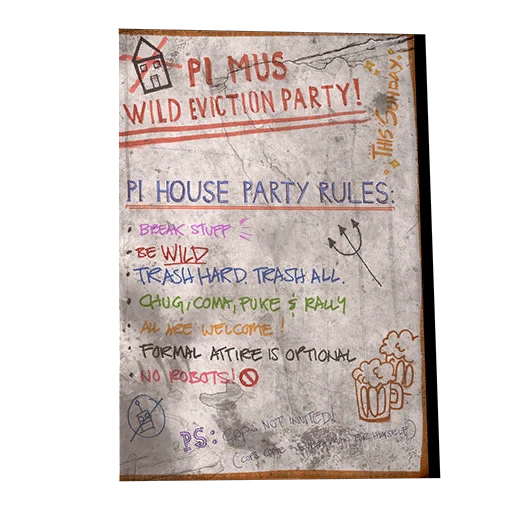 PI MUS
WILD EVICTION PARTY!
THIS SUNDAY.
PI HOUSE PARTY RULES:
• BREAK STUFF
• BE WILD
• TRASH HARD. TRASH ALL.
• CHUG, COMA, PUKE & RALLY
• ALL ARE WELCOME!
• FORMAL ATTIRE IS OPTIONAL
• NO ROBOTS!
PS: COPS NOT INVITED!
(COPS COME